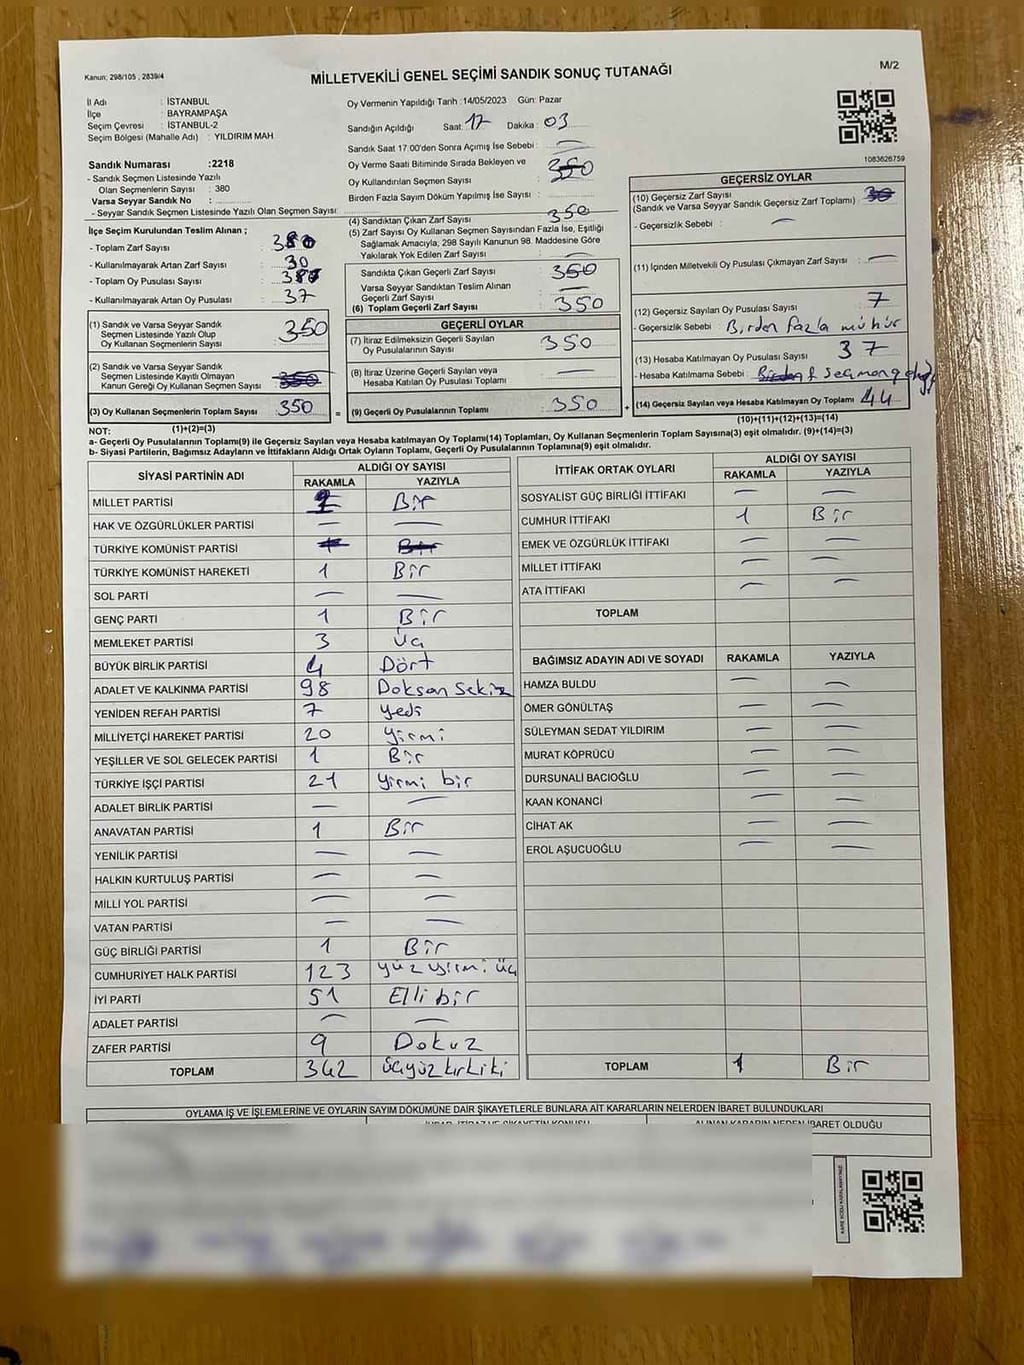 Kanun; 298/105 , 2839/4
MİLLETVEKİLİ GENEL SEÇİMİ SANDIK SONUÇ TUTANAĞI
M/2
İl Adı : İSTANBUL
İlçe : BAYRAMPAŞA
Seçim Çevresi : İSTANBUL-2
Seçim Bölgesi (Mahalle Adı) : YILDIRIM MAH.
Sandık Numarası :2218
- Sandık Seçmen Listesinde Yazılı
Olan Seçmenlerin Sayısı : 380
Varsa Seyyar Sandık No :
- Seyyar Sandık Seçmen Listesinde Yazılı Olan Seçmen Sayısı:
Oy Vermenin Yapıldığı Tarih :14/05/2023 Gün: Pazar
Sandığın Açıldığı Saat: 17 Dakika : 03
Sandık Saat 17.00'den Sonra Açımış İse Sebebi : —
Oy Verme Saati Bitiminde Sırada Bekleyen ve
Oy Kullandırılan Seçmen Sayısı : 350
Birden Fazla Sayım Döküm Yapılmış İse Sayısı :
1083626759
İlçe Seçim Kurulundan Teslim Alınan ;
- Toplam Zarf Sayısı : 380
- Kullanılmayarak Artan Zarf Sayısı : 30
- Toplam Oy Pusulası Sayısı : 387
- Kullanılmayarak Artan Oy Pusulası : 37
(1) Sandık ve Varsa Seyyar Sandık
Seçmen Listesinde Yazılı Olup
Oy Kullanan Seçmenlerin Sayısı : 350
(2) Sandık ve Varsa Seyyar Sandık
Seçmen Listesinde Kayıtlı Olmayan
Kanun Gereği Oy Kullanan Seçmen Sayısı : 350
(3) Oy Kullanan Seçmenlerin Toplam Sayısı 350
(1)+(2)=(3)
(4) Sandıktan Çıkan Zarf Sayısı : 350
(5) Zarf Sayısı Oy Kullanan Seçmen Sayısından Fazla İse, Eşitliği
Sağlamak Amacıyla, 298 Sayılı Kanunun 98. Maddesine Göre
Yakılarak Yok Edilen Zarf Sayısı : —
Sandıkta Çıkan Geçerli Zarf Sayısı : 350
Varsa Seyyar Sandıktan Teslim Alınan
Geçerli Zarf Sayısı : —
(6) Toplam Geçerli Zarf Sayısı : 350
GEÇERLİ OYLAR
(7) İtiraz Edilmeksizin Geçerli Sayılan
Oy Pusulalarının Sayısı : 350
(8) İtiraz Üzerine Geçerli Sayılan veya
Hesaba Katılan Oy Pusulası Toplamı : —
= (9) Geçerli Oy Pusulalarının Toplamı : 350 +
GEÇERSİZ OYLAR
(10) Geçersiz Zarf Sayısı : 30
(Sandık ve Varsa Seyyar Sandık Geçersiz Zarf Toplamı)
- Geçersizlik Sebebi : —
(11) İçinden Milletvekili Oy Pusulası Çıkmayan Zarf Sayısı : —
(12) Geçersiz Sayılan Oy Pusulası Sayısı : 7
- Geçersizlik Sebebi : Birden fazla mühür
(13) Hesaba Katılmayan Oy Pusulası Sayısı : 37
- Hesaba Katılmama Sebebi :
(14) Geçersiz Sayılan veya Hesaba Katılmayan Oy Toplamı : 44
(10)+(11)+(12)+(13)=(14)
NOT:
a- Geçerli Oy Pusulalarının Toplamı(9) ile Geçersiz Sayılan veya Hesaba katılmayan Oy Toplamı(14) Toplamları, Oy Kullanan Seçmenlerin Toplam Sayısına(3) eşit olmalıdır. (9)+(14)=(3)
b- Siyasi Partilerin, Bağımsız Adayların ve İttifakların Aldığı Ortak Oyların Toplamı, Geçerli Oy Pusulalarının Toplamına(9) eşit olmalıdır.
SİYASİ PARTİNİN ADI ALDIĞI OY SAYISI
RAKAMLA YAZIYLA
MİLLET PARTİSİ 1 Bir
HAK VE ÖZGÜRLÜKLER PARTİSİ — —
TÜRKİYE KOMÜNİST PARTİSİ 1 Bir
TÜRKİYE KOMÜNİST HAREKETİ 1 Bir
SOL PARTİ — —
GENÇ PARTİ 1 Bir
MEMLEKET PARTİSİ 3 Üç
BÜYÜK BİRLİK PARTİSİ 4 Dört
ADALET VE KALKINMA PARTİSİ 98 Doksan Sekiz
YENİDEN REFAH PARTİSİ 7 Yedi
MİLLİYETÇİ HAREKET PARTİSİ 20 Yirmi
YEŞİLLER VE SOL GELECEK PARTİSİ 1 Bir
TÜRKİYE İŞÇİ PARTİSİ 21 Yirmi bir
ADALET BİRLİK PARTİSİ — —
ANAVATAN PARTİSİ 1 Bir
YENİLİK PARTİSİ — —
HALKIN KURTULUŞ PARTİSİ — —
MİLLİ YOL PARTİSİ — —
VATAN PARTİSİ — —
GÜÇ BİRLİĞİ PARTİSİ 1 Bir
CUMHURİYET HALK PARTİSİ 123 Yüz yirmi üç
İYİ PARTİ 51 Elli bir
ADALET PARTİSİ — —
ZAFER PARTİSİ 9 Dokuz
TOPLAM 342 Üçyüzkırkiki
İTTİFAK ORTAK OYLARI ALDIĞI OY SAYISI
RAKAMLA YAZIYLA
SOSYALİST GÜÇ BİRLİĞİ İTTİFAKI — —
CUMHUR İTTİFAKI 1 Bir
EMEK VE ÖZGÜRLÜK İTTİFAKI — —
MİLLET İTTİFAKI — —
ATA İTTİFAKI — —
TOPLAM
BAĞIMSIZ ADAYIN ADI VE SOYADI RAKAMLA YAZIYLA
HAMZA BULDU — —
ÖMER GÖNÜLTAŞ — —
SÜLEYMAN SEDAT YILDIRIM — —
MURAT KÖPRÜCÜ — —
DURSUNALİ BACIOĞLU — —
KAAN KONANCİ — —
CİHAT AK — —
EROL AŞUCUOĞLU — —
TOPLAM 1 Bir
OYLAMA İŞ VE İŞLEMLERİNE VE OYLARIN SAYIM DÖKÜMÜNE DAİR ŞİKAYETLERLE BUNLARA AİT KARARLARIN NELERDEN İBARET BULUNDUKLARI
ALINAN KARARIN NEDEN İBARET OLDUĞU